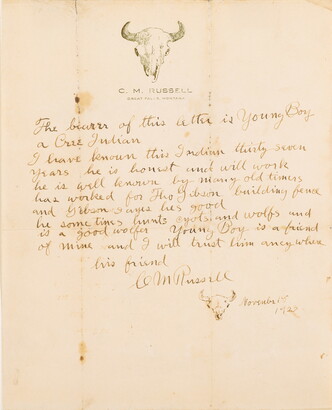 C. M. RUSSELL
GREAT FALLS, MONTANA
The bearer of this letter is Young Boy
a Cree Indian
I have known this Indian thirty seven
years he is honest and will work
he is well known by many old timers
has worked for Gibson building fence
and Gibson sayes hes good
he some times hunts cyots and wolfs and
is a good wolfer Young Boy is a friend
of mine and I will trust him aney where
his friend
C M Russell
November
1922